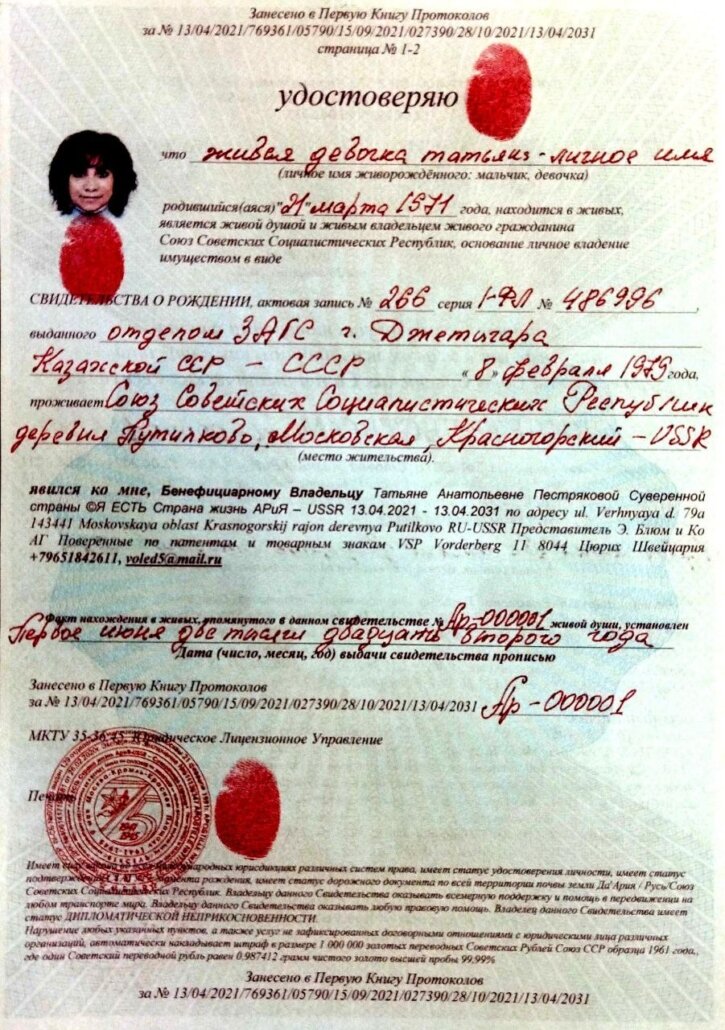 Занесено в Первую Книгу Протоколов
за № 13/04/2021/769361/05790/15/09/2021/027390/28/10/2021/13/04/2031
страница № 1-2
удостоверяю
что живая девочка татьяна - личное имя
(личное имя живорождённого: мальчик, девочка)
родившийся(аяся) "21" марта 1971 года, находится в живых,
является живой душой и живым владельцем живого гражданина
Союз Советских Социалистических Республик, основание личное владение
имуществом в виде
СВИДЕТЕЛЬСТВА О РОЖДЕНИИ, актовая запись № 266 серия I-ФЛ № 486996
выданного отделом ЗАГС г. Джетигара
Казахской ССР - СССР «8» февраля 1979 года,
проживает Союз Советских Социалистических Республик
деревня Путилково, Московская, Красногорский - USSR
(место жительства).
явился ко мне, Бенефициарному Владельцу Татьяне Анатольевне Пестряковой Суверенной
страны ©Я ЕСТЬ Страна жизнь АРиЯ – USSR 13.04.2021 - 13.04.2031 по адресу ul. Verhnyaya d. 79a
143441 Moskovskaya oblast Krasnogorskij rajon derevnya Putilkovo RU-USSR Представитель Э. Блюм и Ко
АГ Поверенные по патентам и товарным знакам VSP Vorderberg 11 8044 Цюрих Швейцария
+79651842611, voled5@mail.ru
Факт нахождения в живых, упомянутого в данном свидетельстве № Ар-000001 живой души, установлен
Первое июня две тысячи двадцать второго года
Дата (число, месяц, год) выдачи свидетельства прописью
Занесено в Первую Книгу Протоколов
за № 13/04/2021/769361/05790/15/09/2021/027390/28/10/2021/13/04/2031 Ар-000001
МКТУ 35-36-45. Юридическое Лицензионное Управление
Печать
Имеет силу международных юрисдикциях различных систем права, имеет статус удостоверения личности, имеет статус
подтверждения момента рождения, имеет статус дорожного документа по всей территории почвы земли Да'Ария / Русь/Союз
Советских Социалистических Республик. Владельцу данного Свидетельства оказывать всемерную поддержку и помощь в передвижении на
любом транспорте мира. Владельцу данного Свидетельства оказывать любую правовую помощь. Владелец данного Свидетельства имеет
статус ДИПЛОМАТИЧЕСКОЙ НЕПРИКОСНОВЕННОСТИ.
Нарушение любых указанных пунктов, а также услуг не зафиксированных договорными отношениями с юридическими лица различных
организаций, автоматически накладывает штраф в размере 1 000 000 золотых переводных Советских Рублей Союз ССР образца 1961 года.,
где один Советский переводной рубль равен 0,987412 грамм чистого золото высшей пробы 99,99%
Занесено в Первую Книгу Протоколов
за № 13/04/2021/769361/05790/15/09/2021/027390/28/10/2021/13/04/2031